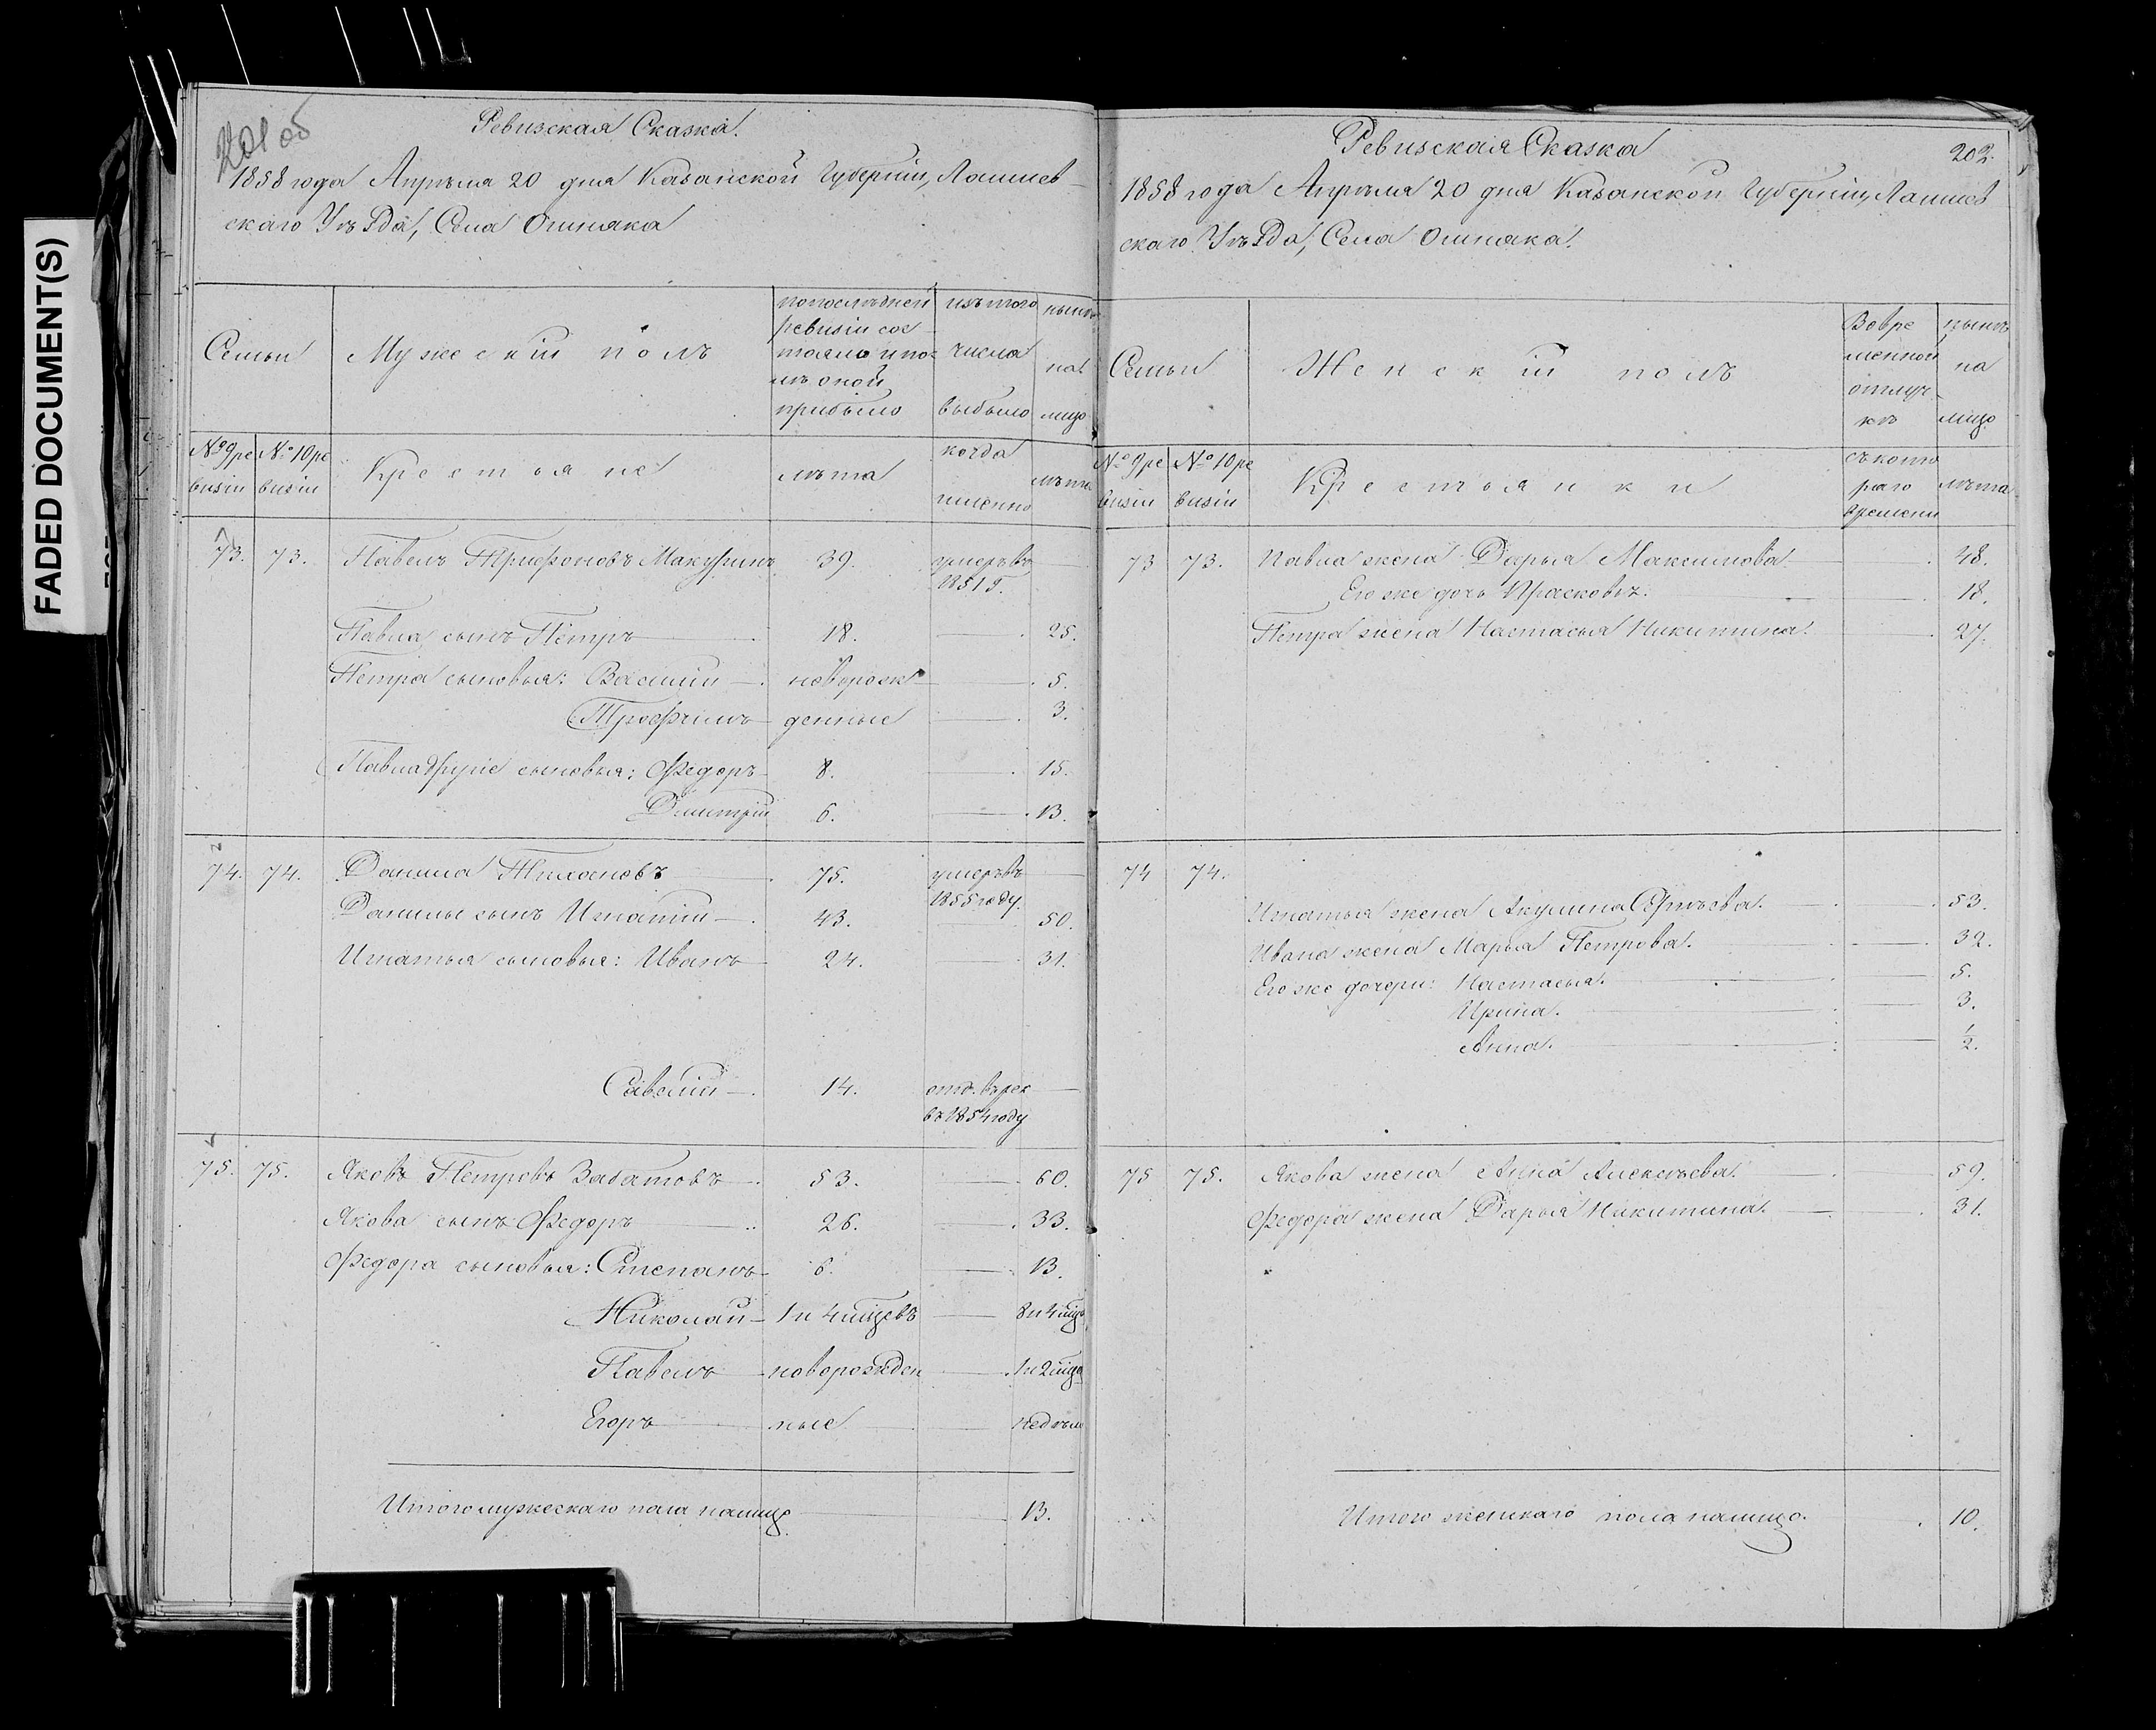 FADED DOCUMENT(S)
201 об
Ревизская Сказка.
1858 года Апрѣля 20 дня Казанской Губерніи, Лаишев
скаго Уѣзда, Села Ошняка
Семьи
Мужескій полъ
по послѣдней
ревизіи сос
тояло и по
слѣ оной
прибыло
изъ того
числа
выбыло
нынѣ
на
лицо
№ 9 ре
визіи
№ 10 ре
визіи
Крестьяне
лѣта
когда
именно
лѣта
73. 73. Павелъ Трифоновъ Макуринъ 39. умеръ въ
1851 г.
Павла сынъ Петръ 18. 25.
Петра сыновья: Василій новорож 5.
Трофимъ денные 3.
Павла другіе сыновья: Федоръ 8. 15.
Дмитрій 6. 13.
74. 74. Данила Тихоновъ 75. умеръ въ
1855 году.
Данилы сынъ Игнатій 43. 50.
Игнатья сыновья: Иванъ 24. 31.
Савелій 14. отд. въ рек
въ 1854 году
75. 75. Яковъ Петровъ Забатовъ 53. 60.
Якова сынъ Федоръ 26. 33.
Федора сыновья: Степанъ 6. 13.
Николай 1 и 4 мѣсцевъ 8 и 4 мѣсц
Павелъ новорожден 1 и 2 мѣсца
Егоръ ные недѣли
Итого мужескаго пола налицо 13.
Ревизская Сказка
202.
1858 года Апрѣля 20 дня Казанской Губерніи, Лаишев
скаго Уѣзда, Села Ошняка.
Семьи
Женскій полъ
Во вре
менной
отлуч
кѣ
нынѣ
на
лицо
№ 9 ре
визіи
№ 10 ре
визіи
Крестьянки
съ кото
раго
времени
лѣта
73 73. Павла жена Дарья Максимова 48.
Его же дочь Прасковья. 18.
Петра жена Настасья Никитина. 27.
74 74.
Игнатья жена Акулина Сергѣева. 53.
Ивана жена Марья Петрова. 32.
Его же дочери: Настасья. 5.
Ирина. 3.
Анна. 1/2.
75 75. Якова жена Анна Алексѣева. 59.
Федора жена Дарья Никитина. 31.
Итого женскаго пола налицо. 10.